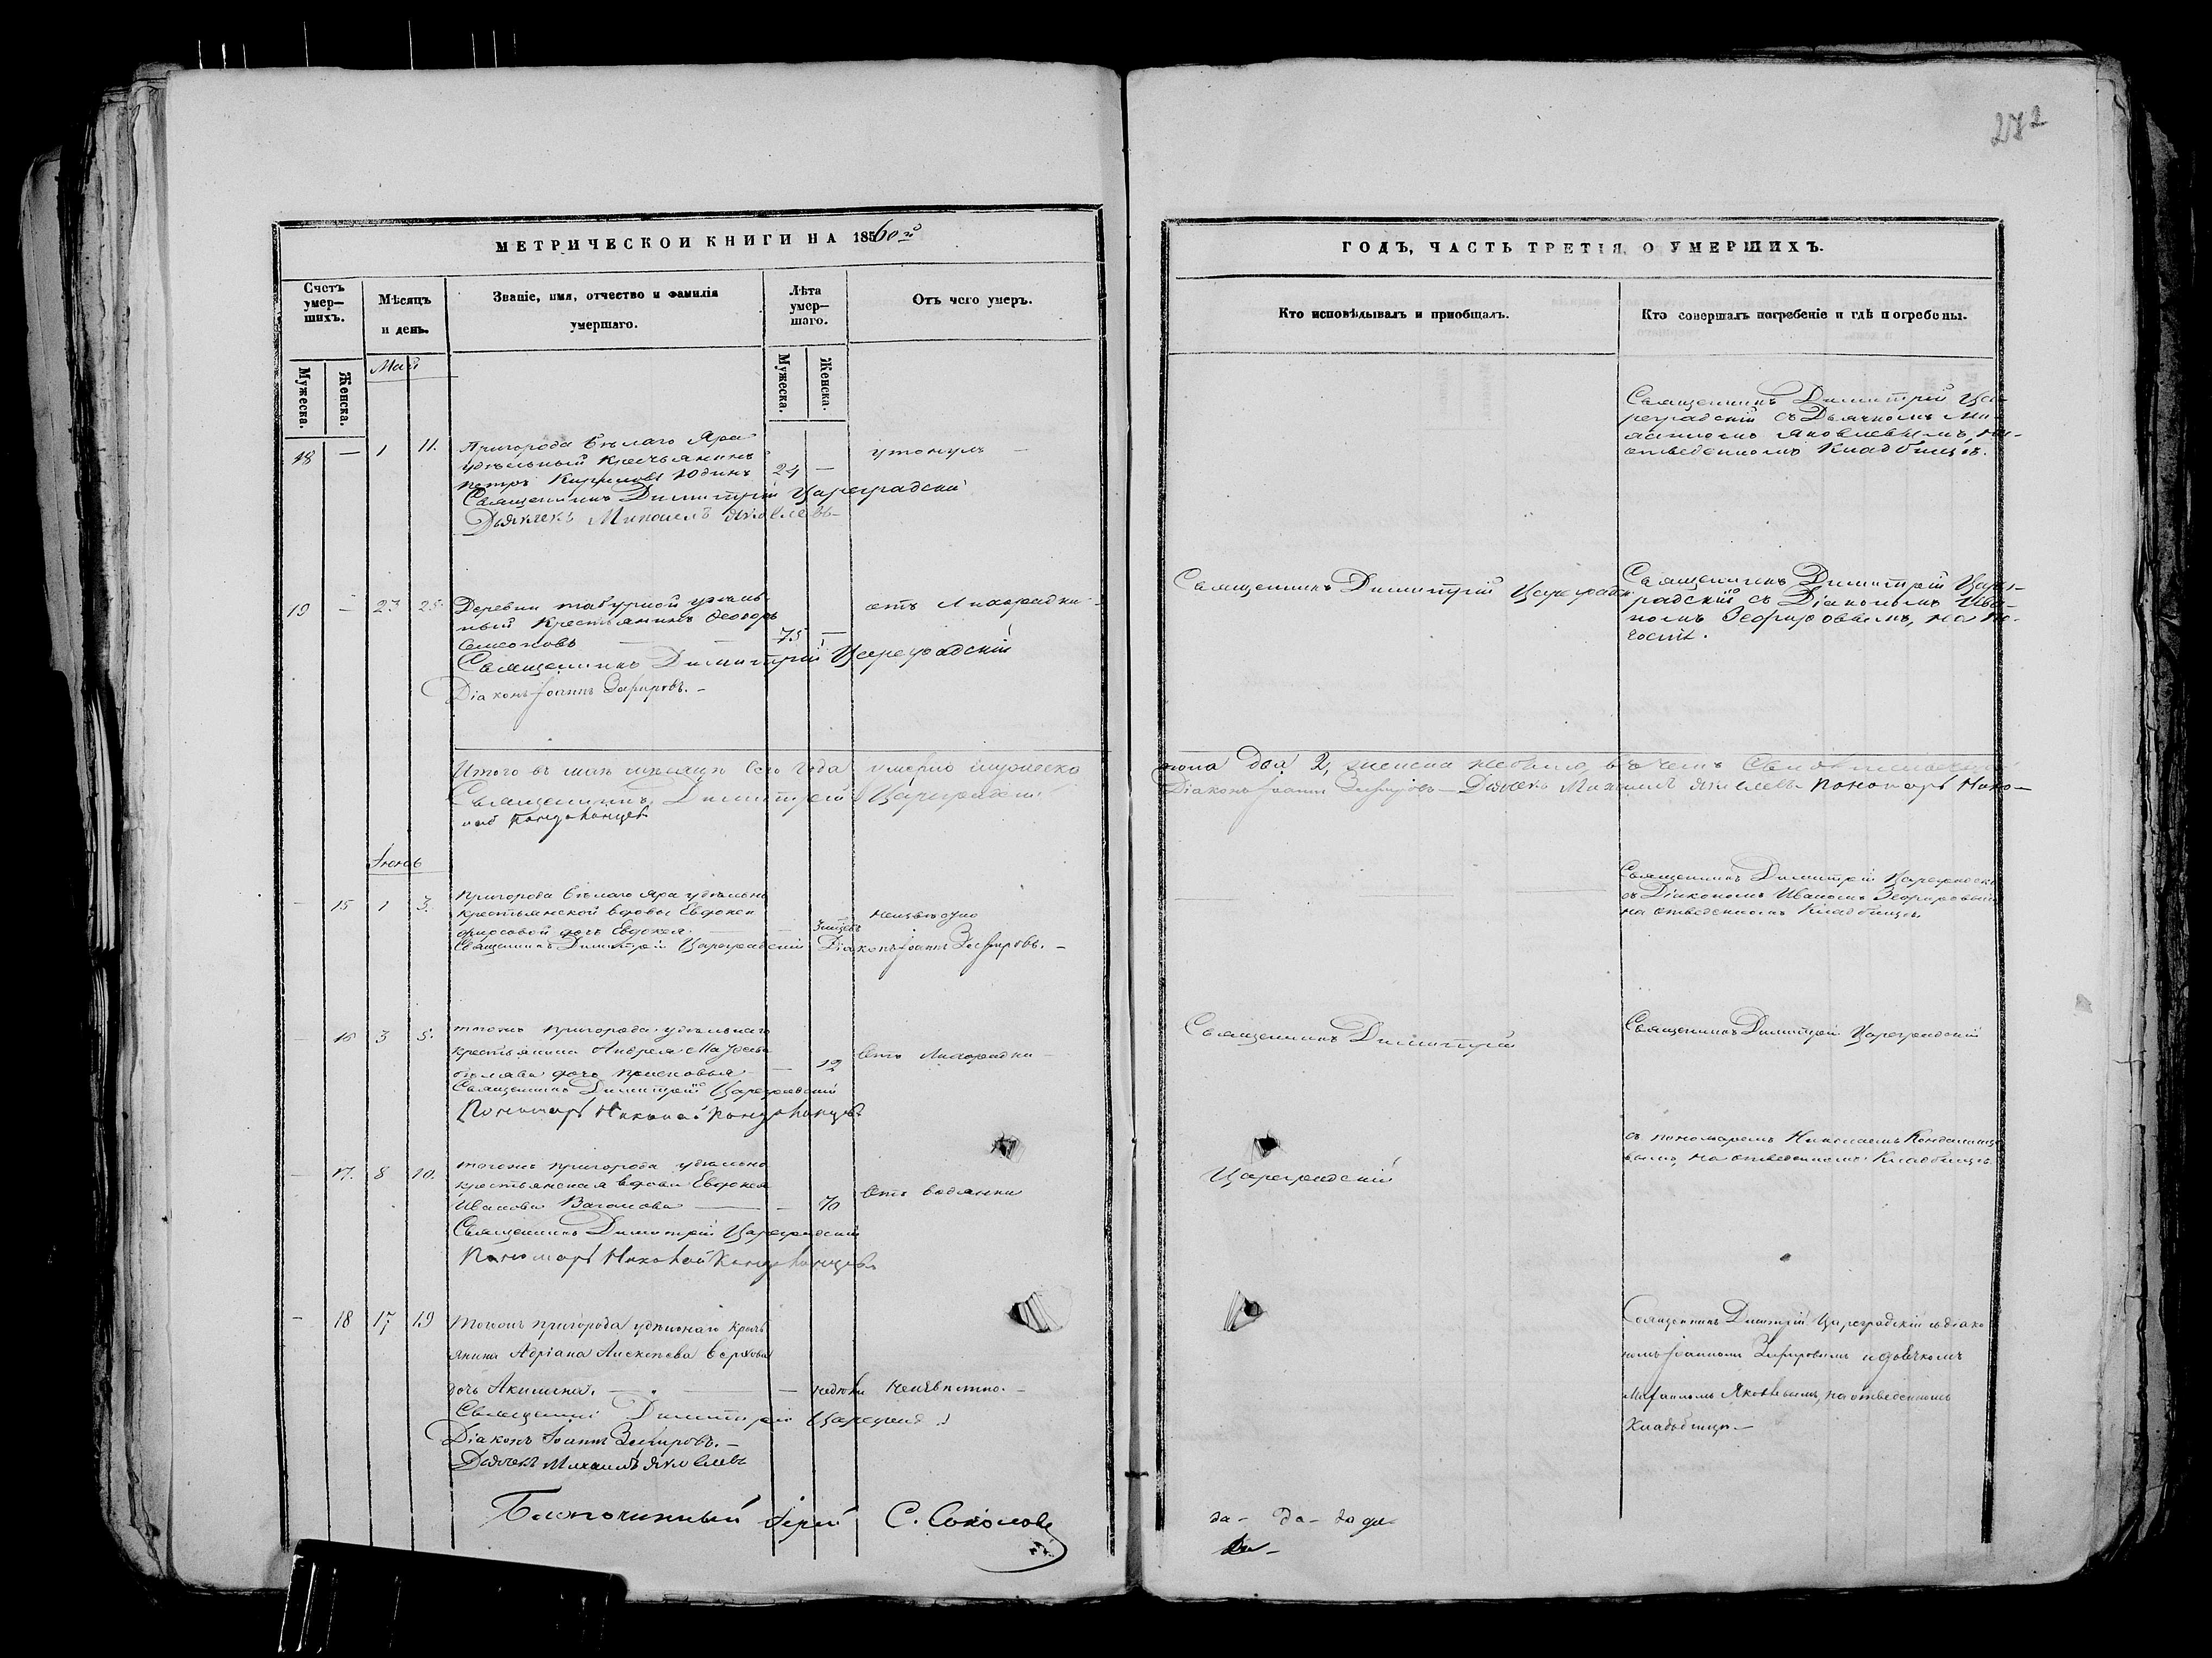 282
МЕТРИЧЕСКОЙ КНИГИ НА 1860й
ГОДЪ, ЧАСТЬ ТРЕТІЯ, О УМЕРШИХЪ.
Счетъ умер—шихъ.
Мѣсяцъ и день.
Званіе, имя, отчество и фамилія умершаго.
Лѣта умер—шаго.
Отъ чего умеръ.
Кто исповѣдывалъ и пріобщалъ.
Кто совершалъ погребеніе и гдѣ погребены.
Мужеска.
Женска.
Мужеска.
Женска.
Май
18 — 1 11.
Пригорода Бѣлаго Яра
удѣльный крестьянинъ
Петръ Кирилловъ Юдинъ
24 —
утонулъ —
Священникъ Димитрій Цареградскій
Дьячекъ Михаилъ Яковлевъ—
Священникъ Димитрій Ца-
реградскій съ Дьячкомъ Ми-
хаиломъ Яковлевымъ, на
отведенномъ Кладбищѣ.
19 — 23 25.
Деревни удѣль-
ный крестьянинъ Ѳеодоръ
Семеновъ
75 —
отъ Лихорадки
Священникъ Димитрій Цареградскій
Діаконъ Іоаннъ Зефировъ. —
Священникъ Димитрій Цареградск
Священникъ Димитрій Царе-
градскій съ Діакономъ Ива-
номъ Зефировымъ, на по-
гостѣ.
Итого въ маѣ мѣсяцѣ сего года умерло мужеска
пола два 2, женска небыло, въ чемъ
Священникъ Димитрій Цареградскій
Діаконъ Іоаннъ Зефировъ — Дьячекъ Михаилъ Яковлевъ Пономарь Нико—
лай
Іюнь
— 15 1 3.
Пригорода Бѣлаго Яра удѣльно
крестьянской вдовы Евдокеи
Фирсовой дочь Евдокея.
неизвѣстно
Священникъ Димитрій Цареградскій Діаконъ Іоаннъ Зефировъ. —
Священникъ Димитрій Цареградскій
съ Діакономъ Иваномъ Зефировымъ
на отведенномъ Кладбищѣ.
— 16 3 5.
тогоже пригорода удѣльнаго
крестьянина Андрея
дочь
— 12
Отъ Лихорадки —
Священникъ Димитрій Цареградскій
Пономарь Николай
Священникъ Димитрій
Священникъ Димитрій Цареградскій
съ пономаремъ Николаемъ
на отведенномъ Кладбищѣ
— 17. 8 10.
тогоже пригорода удѣльно
крестьянская вдова Евдокея
Иванова
— 70
Отъ водянки
Священникъ Димитрій Цареградскій
Пономарь Николай
Цареградскій
— 18 17 19
Тогоже пригорода удѣльнаго кресть
янина Адріана Алексѣева
дочь Акилина. — — недѣли неизвѣстно. —
Священникъ Димитрій Цареград
Діаконъ Іоаннъ Зефировъ. —
Дьячекъ Михаилъ Яковлевъ
Священникъ Димитрій Цареградскій съ діако
номъ Іоанномъ Зефировымъ и дьячкомъ
Михаиломъ Яковлевымъ, на отведенномъ
Кладбищѣ. —
Благочинный Іерей С. Соколовъ